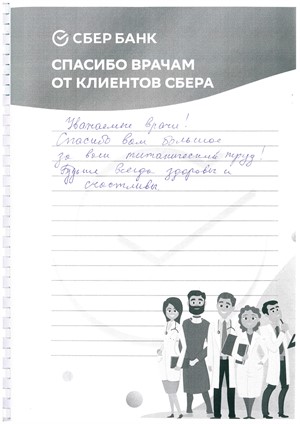 СБЕР БАНК
СПАСИБО ВРАЧАМ
ОТ КЛИЕНТОВ СБЕРА
Уважаемые врачи!
Спасибо вам большое
за ваш титанический труд!
Будьте всегда здоровы и
счастливы